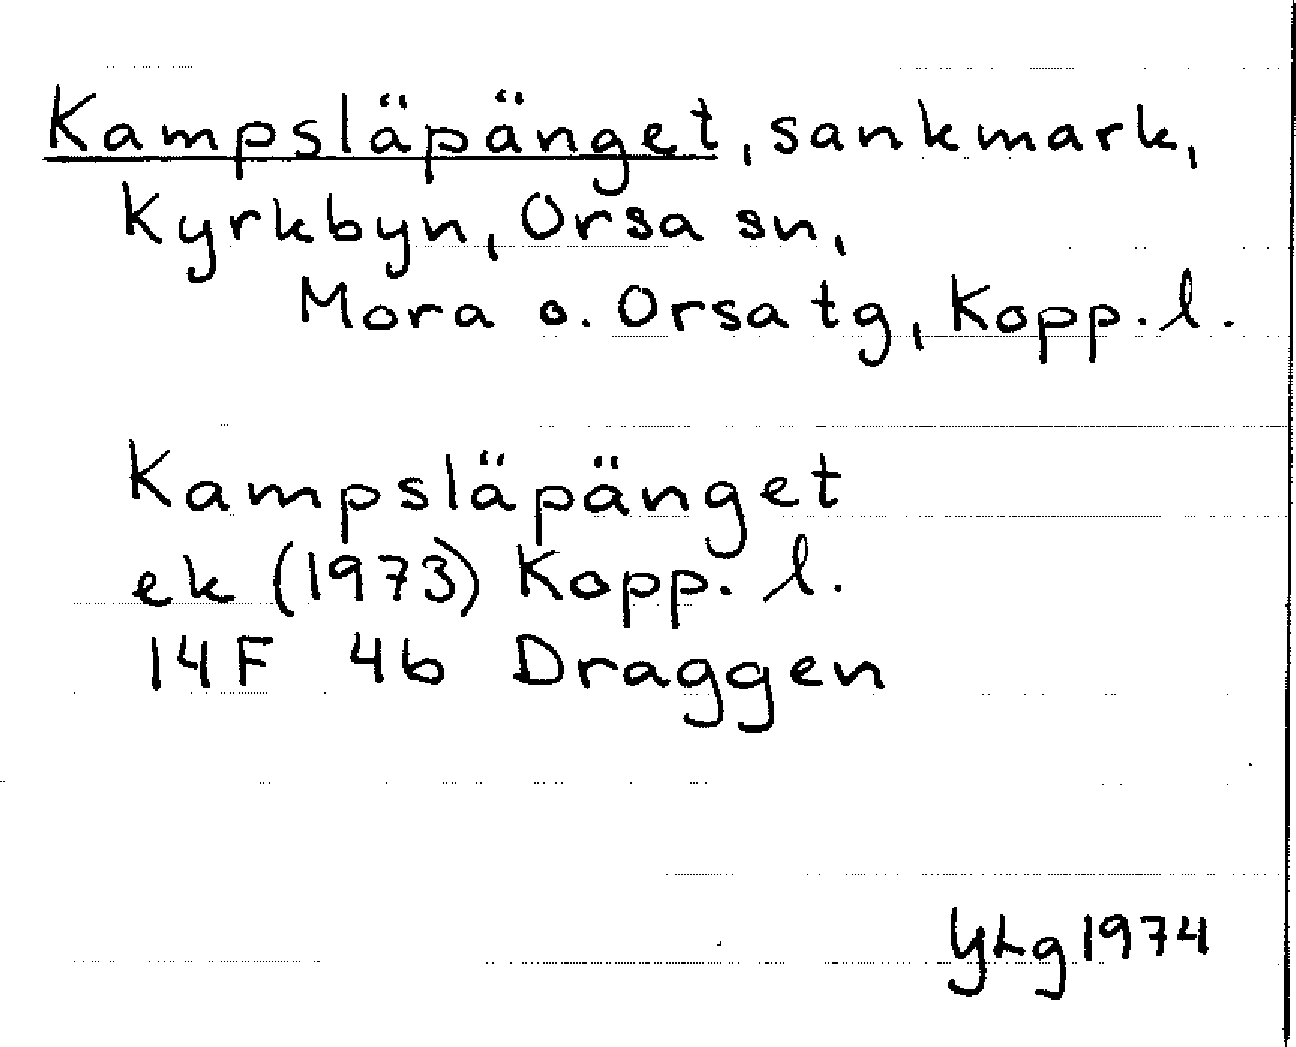 Kampsläpänget, sankmark,
Kyrkbyn, Orsa sn,
Mora o. Orsa tg, Kopp. l.
Kampsläpänget
ek (1973) Kopp. l.
14F 4b Draggen
YLg 1974